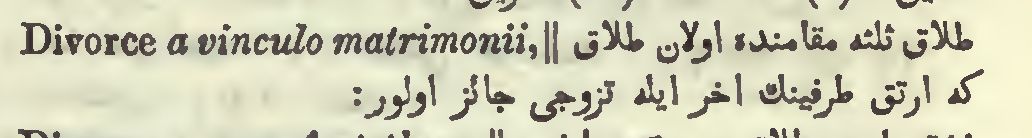 Divorce a vinculo matrimonii, || طلاق ثلثه مقامنده اولان طلاق
كه ارتق طرفينك اخر ايله تزوجى جائز اولور :